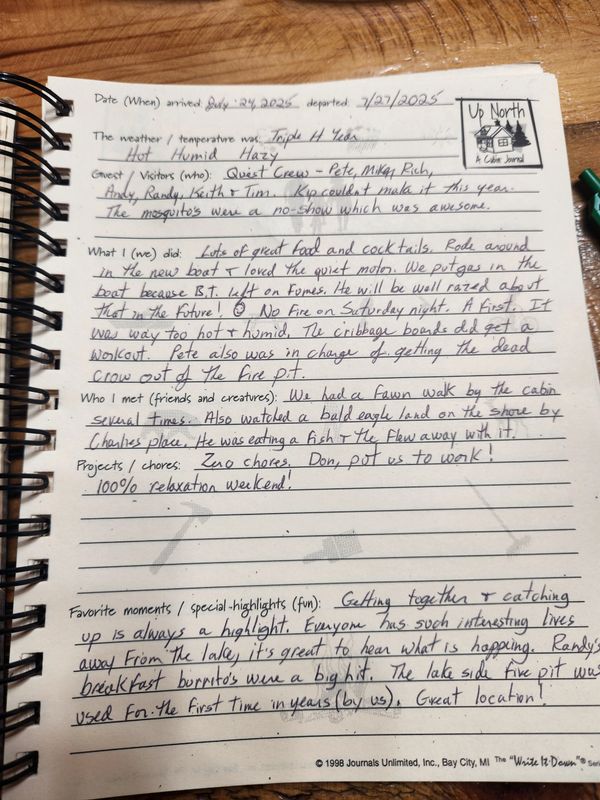 Date (When) arrived: July 24, 2025 departed: 7/27/2025
Up North
A Cabin Journal
The weather / temperature was: Triple H Year
Hot Humid Hazy
Guest / Visitors (who): Quest Crew - Pete, Mike, Rich,
Andy, Randy, Keith & Tim. Kip couldn't make it this year.
The mosquito's were a no-show which was awesome.
What I (we) did: Lots of great food and cocktails. Rode around
in the new boat & loved the quiet motor. We put gas in the
boat because B.T. left on fumes. He will be well razed about
that in the future! ☺ No fire on Saturday night. A first. It
was way too hot & humid. The cribbage boards did get a
workout. Pete also was in charge of getting the dead
crow out of the fire pit.
Who I met (friends and creatures): We had a fawn walk by the cabin
several times. Also watched a bald eagle land on the shore by
Charlies place. He was eating a fish & the flew away with it.
Projects / chores: Zero chores. Don, put us to work!
100% relaxation weekend!
Favorite moments / special-highlights (fun): Getting together & catching
up is always a highlight. Everyone has such interesting lives
away from the lake, it's great to hear what is happing. Randy's
breakfast burrito's were a big hit. The lake side fire pit was
used for the first time in years (by us). Great location!
© 1998 Journals Unlimited, Inc., Bay City, MI The "Write It Down"® Seri